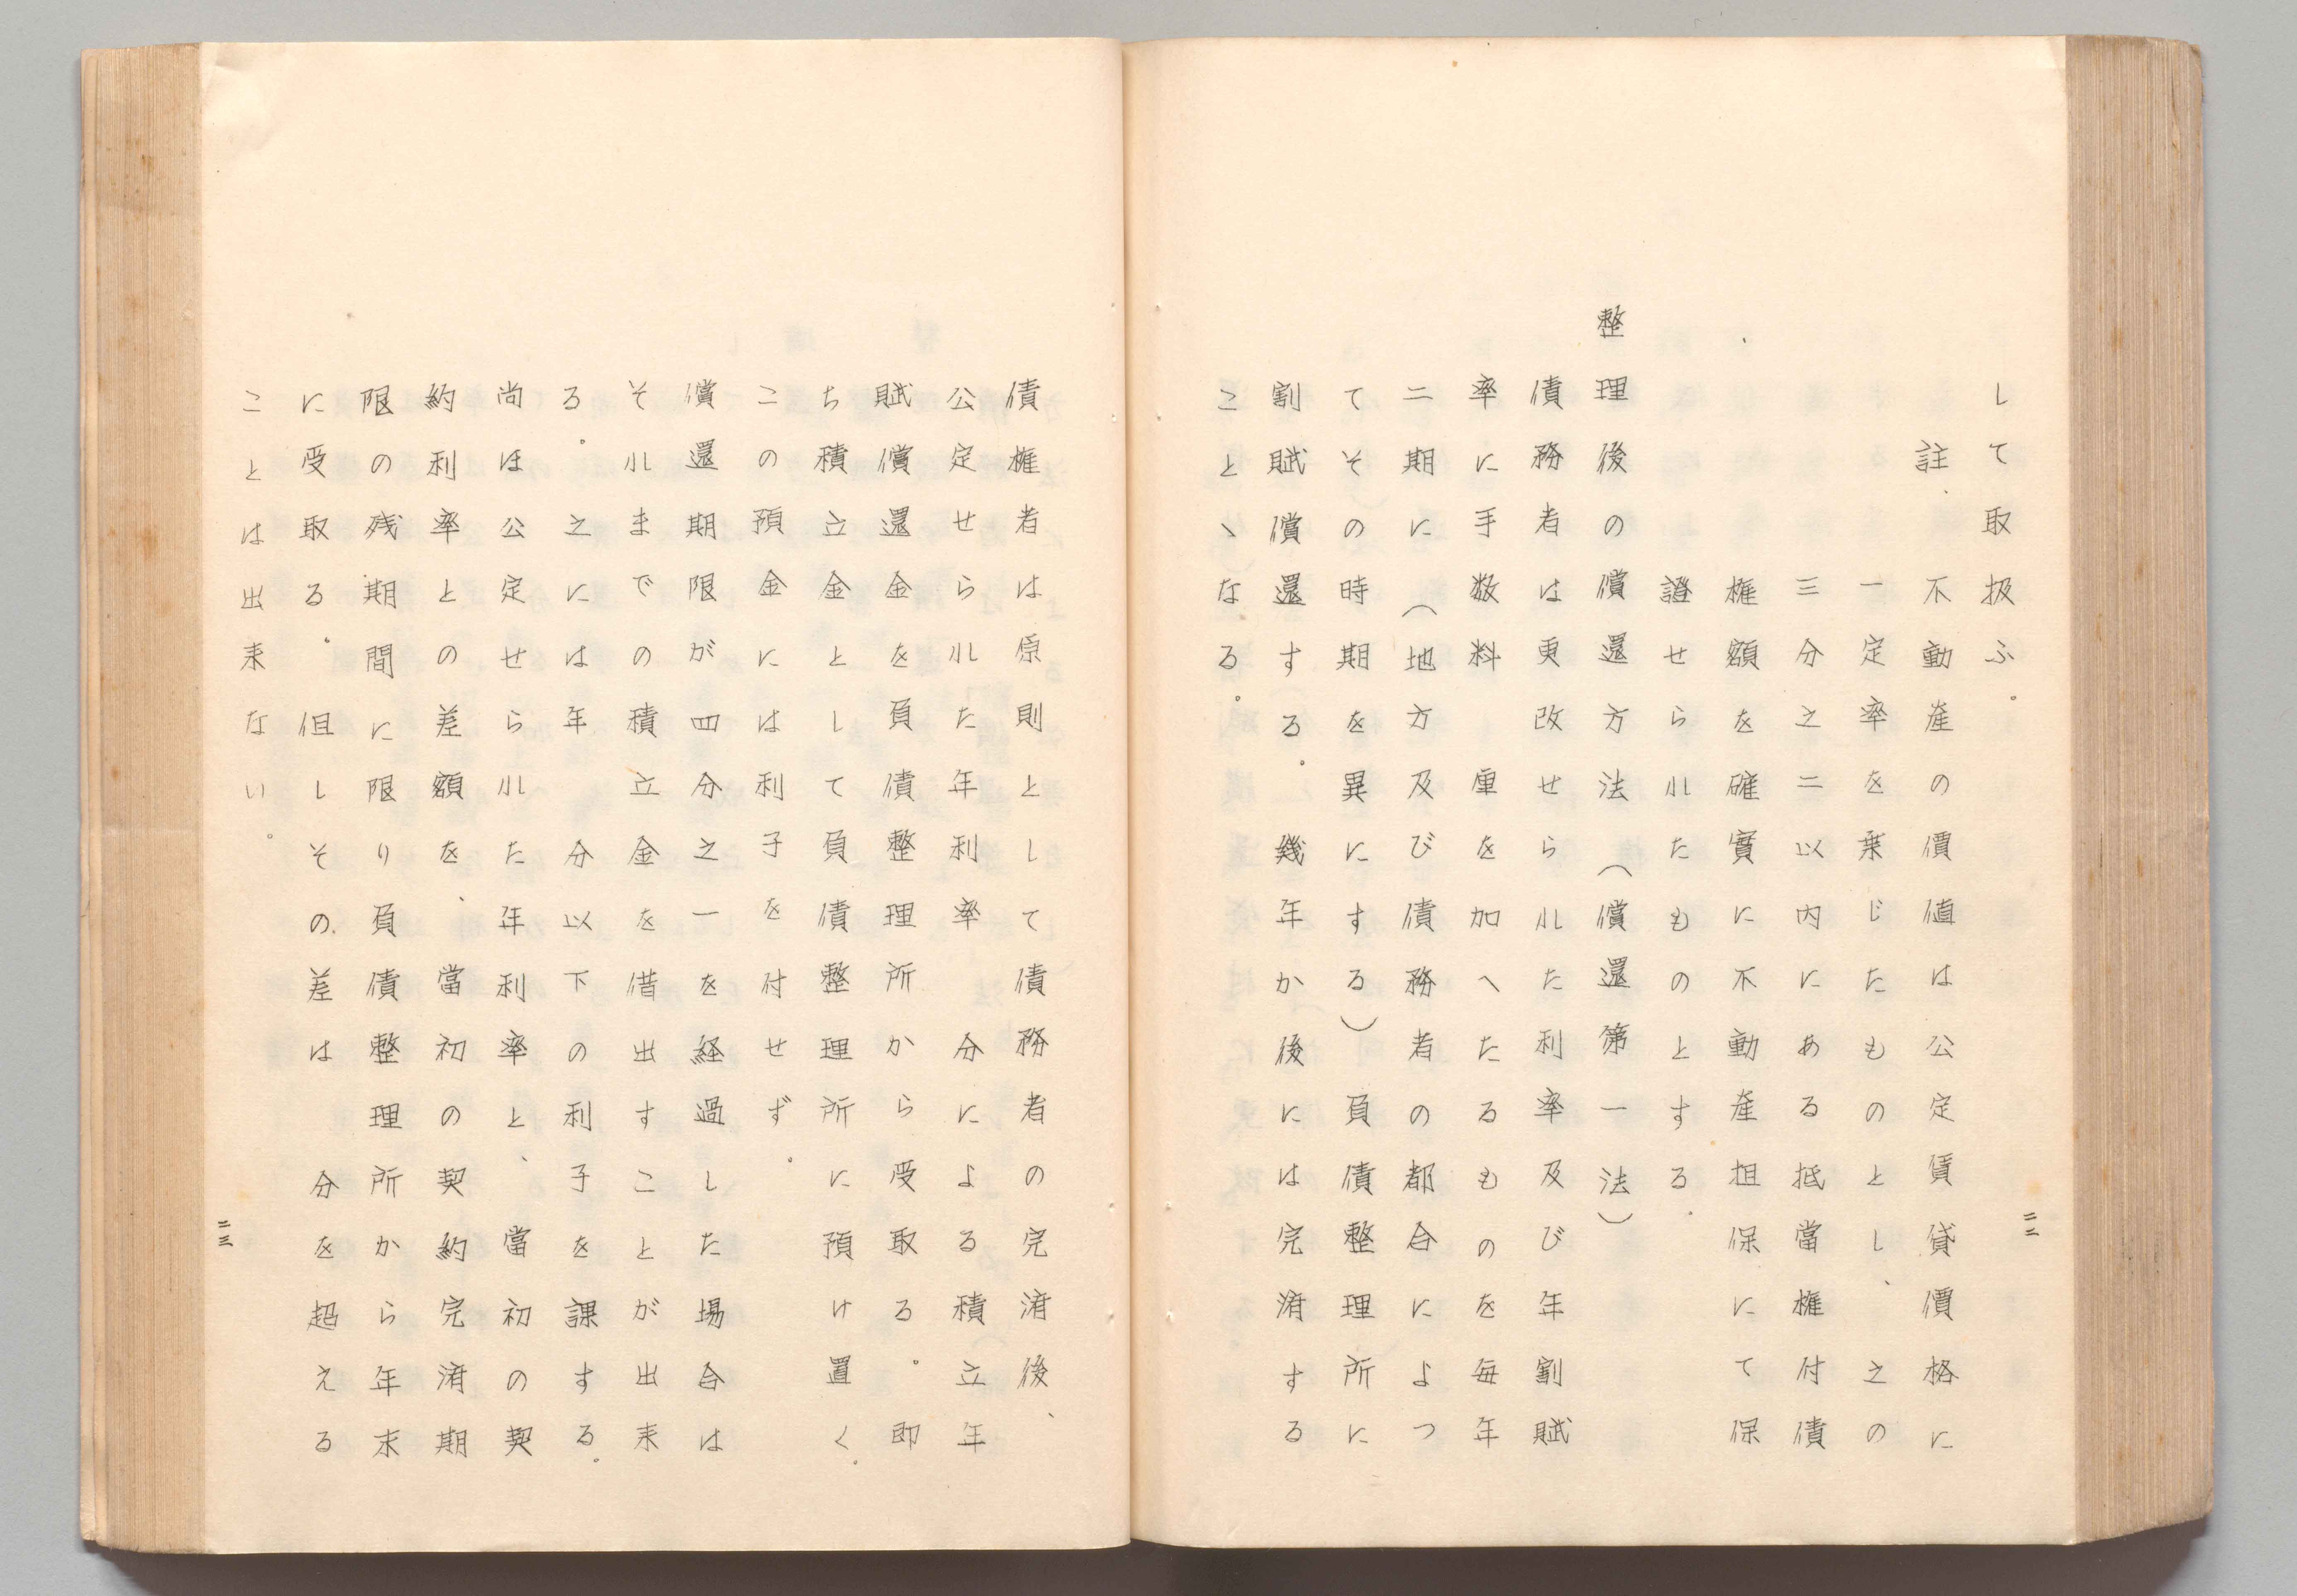 して取扱ふ。
註、不動産の價値は公定賃貸價格に
一定率を乗じたものとし、之の
三分之二以内にある抵當権付債
権額を確實に不動産担保にて保
證せられたものとする。
整理後の償還方法（償還第一法）
債務者は更改せられた利率及び年割賦
率に手数料　厘を加へたるものを毎年
二期に（地方及び債務者の都合によつ
てその時期を異にする）負債整理所に
割賦償還する。幾年か後には完済する
ことゝなる。
二二
債権者は原則として債務者の完済後、
公定せられた年利率　分による積立年
賦償還金を負債整理所から受取る。即
ち積立金として負債整理所に預け置く。
この預金には利子を付せず。
償還期限が四分之一を経過した場合は
それまでの積立金を借出すことが出来
る。之には年　分以下の利子を課する。
尚ほ公定せられた年利率と、當初の契
約利率との差額を、當初の契約完済期
限の残期間に限り負債整理所から年末
に受取る。但しその差は　分を超える
ことは出来ない。
二三